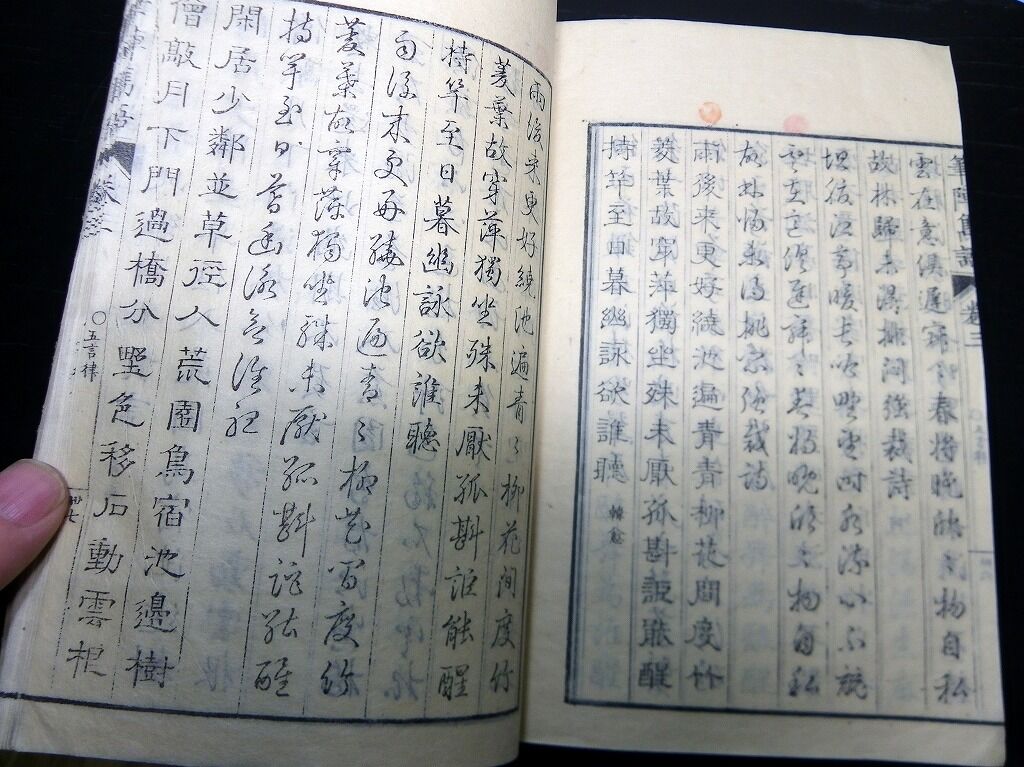 筆陣雋語 卷三
雲在意俱遲寂々春將晚欣々物自私
故林歸未得排悶強裁詩
坦腹江亭暖長吟野望時水流心不競
雲在意俱遲寂々春將晚欣々物自私
故林歸未得排悶強裁詩
雨後来更好繞池遍青青柳花閒度竹
菱葉故穿萍獨坐殊未厭孤斟詎能醒
持竿至日暮幽詠欲誰聽 韓愈
雨後来更好繞池遍青々柳花間度竹
菱葉故穿萍獨坐殊未厭孤斟詎能醒
持竿至日暮幽詠欲誰聽
雨後来更好繞池遍青々柳花間度竹
菱葉故穿萍獨坐殊未厭孤斟詎能醒
持竿至日暮幽詠欲誰聽
閑居少鄰並草徑入荒園鳥宿池邊樹
僧敲月下門過橋分野色移石動雲根
卷三 〇五言律 卌七